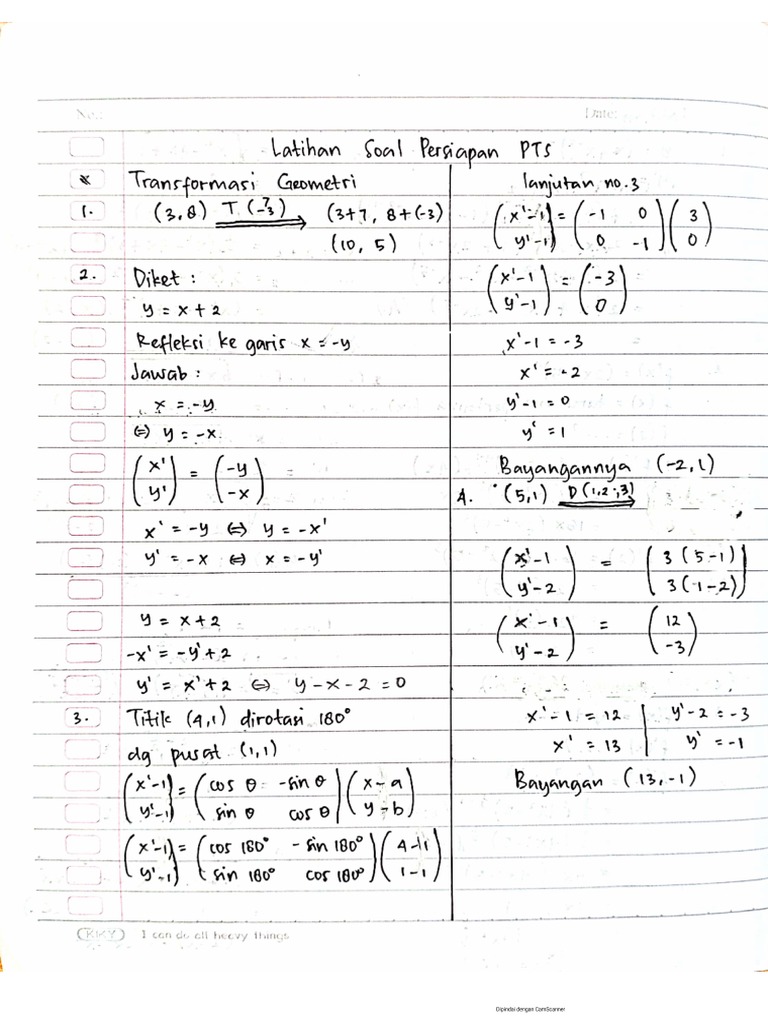 No.:
Date:
Latihan Soal Persiapan PTS
* Transformasi Geometri
1. (3,8) T (7 -3) ⟹ (3+7, 8+(-3)
(10, 5)
2. Diket :
y = x + 2
Refleksi ke garis x = -y
Jawab :
x = -y
⇔ y = -x
(x' y') = (-y -x)
x' = -y ⇔ y = -x'
y' = -x ⇔ x = -y'
y = x + 2
-x' = -y' + 2
y' = x' + 2 ⇔ y - x - 2 = 0
3. Titik (4,1) dirotasi 180°
dg pusat (1,1)
(x'-1 y'-1) = (cos θ -sin θ sin θ cos θ) (x-a y-b)
(x'-1 y'-1) = (cos 180° -sin 180° sin 180° cos 180°) (4-1 1-1)
lanjutan no.3
(x'-1 y'-1) = (-1 0 0 -1) (3 0)
(x'-1 y'-1) = (-3 0)
x'-1 = -3
x' = -2
y'-1 = 0
y' = 1
Bayangannya (-2,1)
4. (5,1) D (1,2 ; 3) ⟹
(x'-1 y'-2) = (3(5-1) 3(1-2))
(x'-1 y'-2) = (12 -3)
x'-1 = 12 | y'-2 = -3
x' = 13 | y' = -1
Bayangan (13,-1)
KKY I can do all heavy things
Dipindai dengan CamScanner